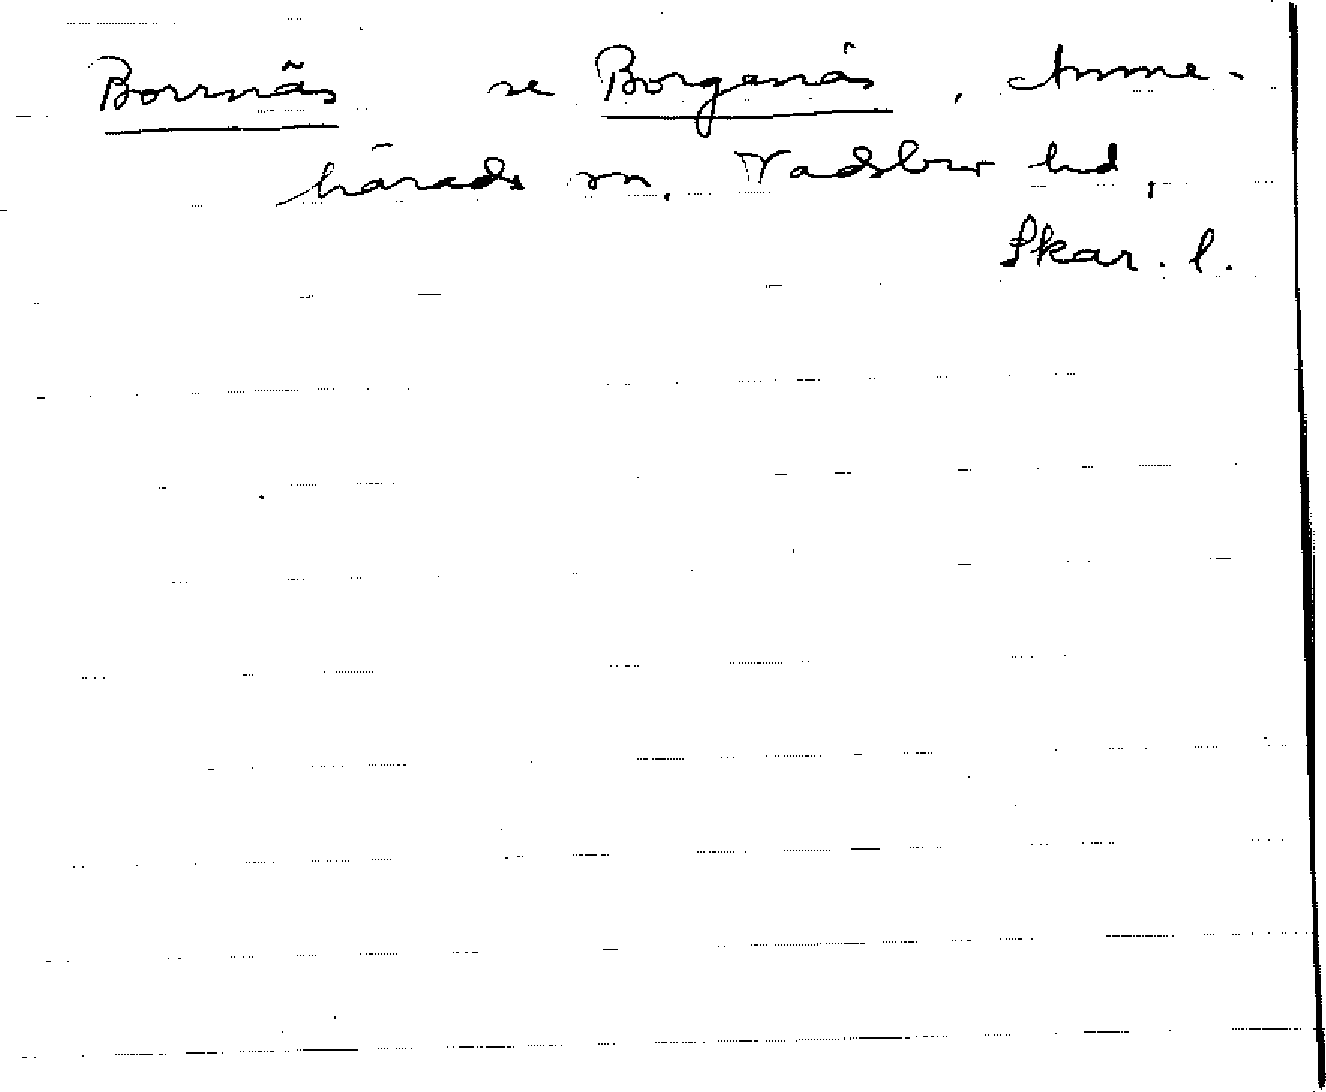 Borrnäs se Borganäs, Amne-
härads sn, Vadsbro hd,
Skar. l.